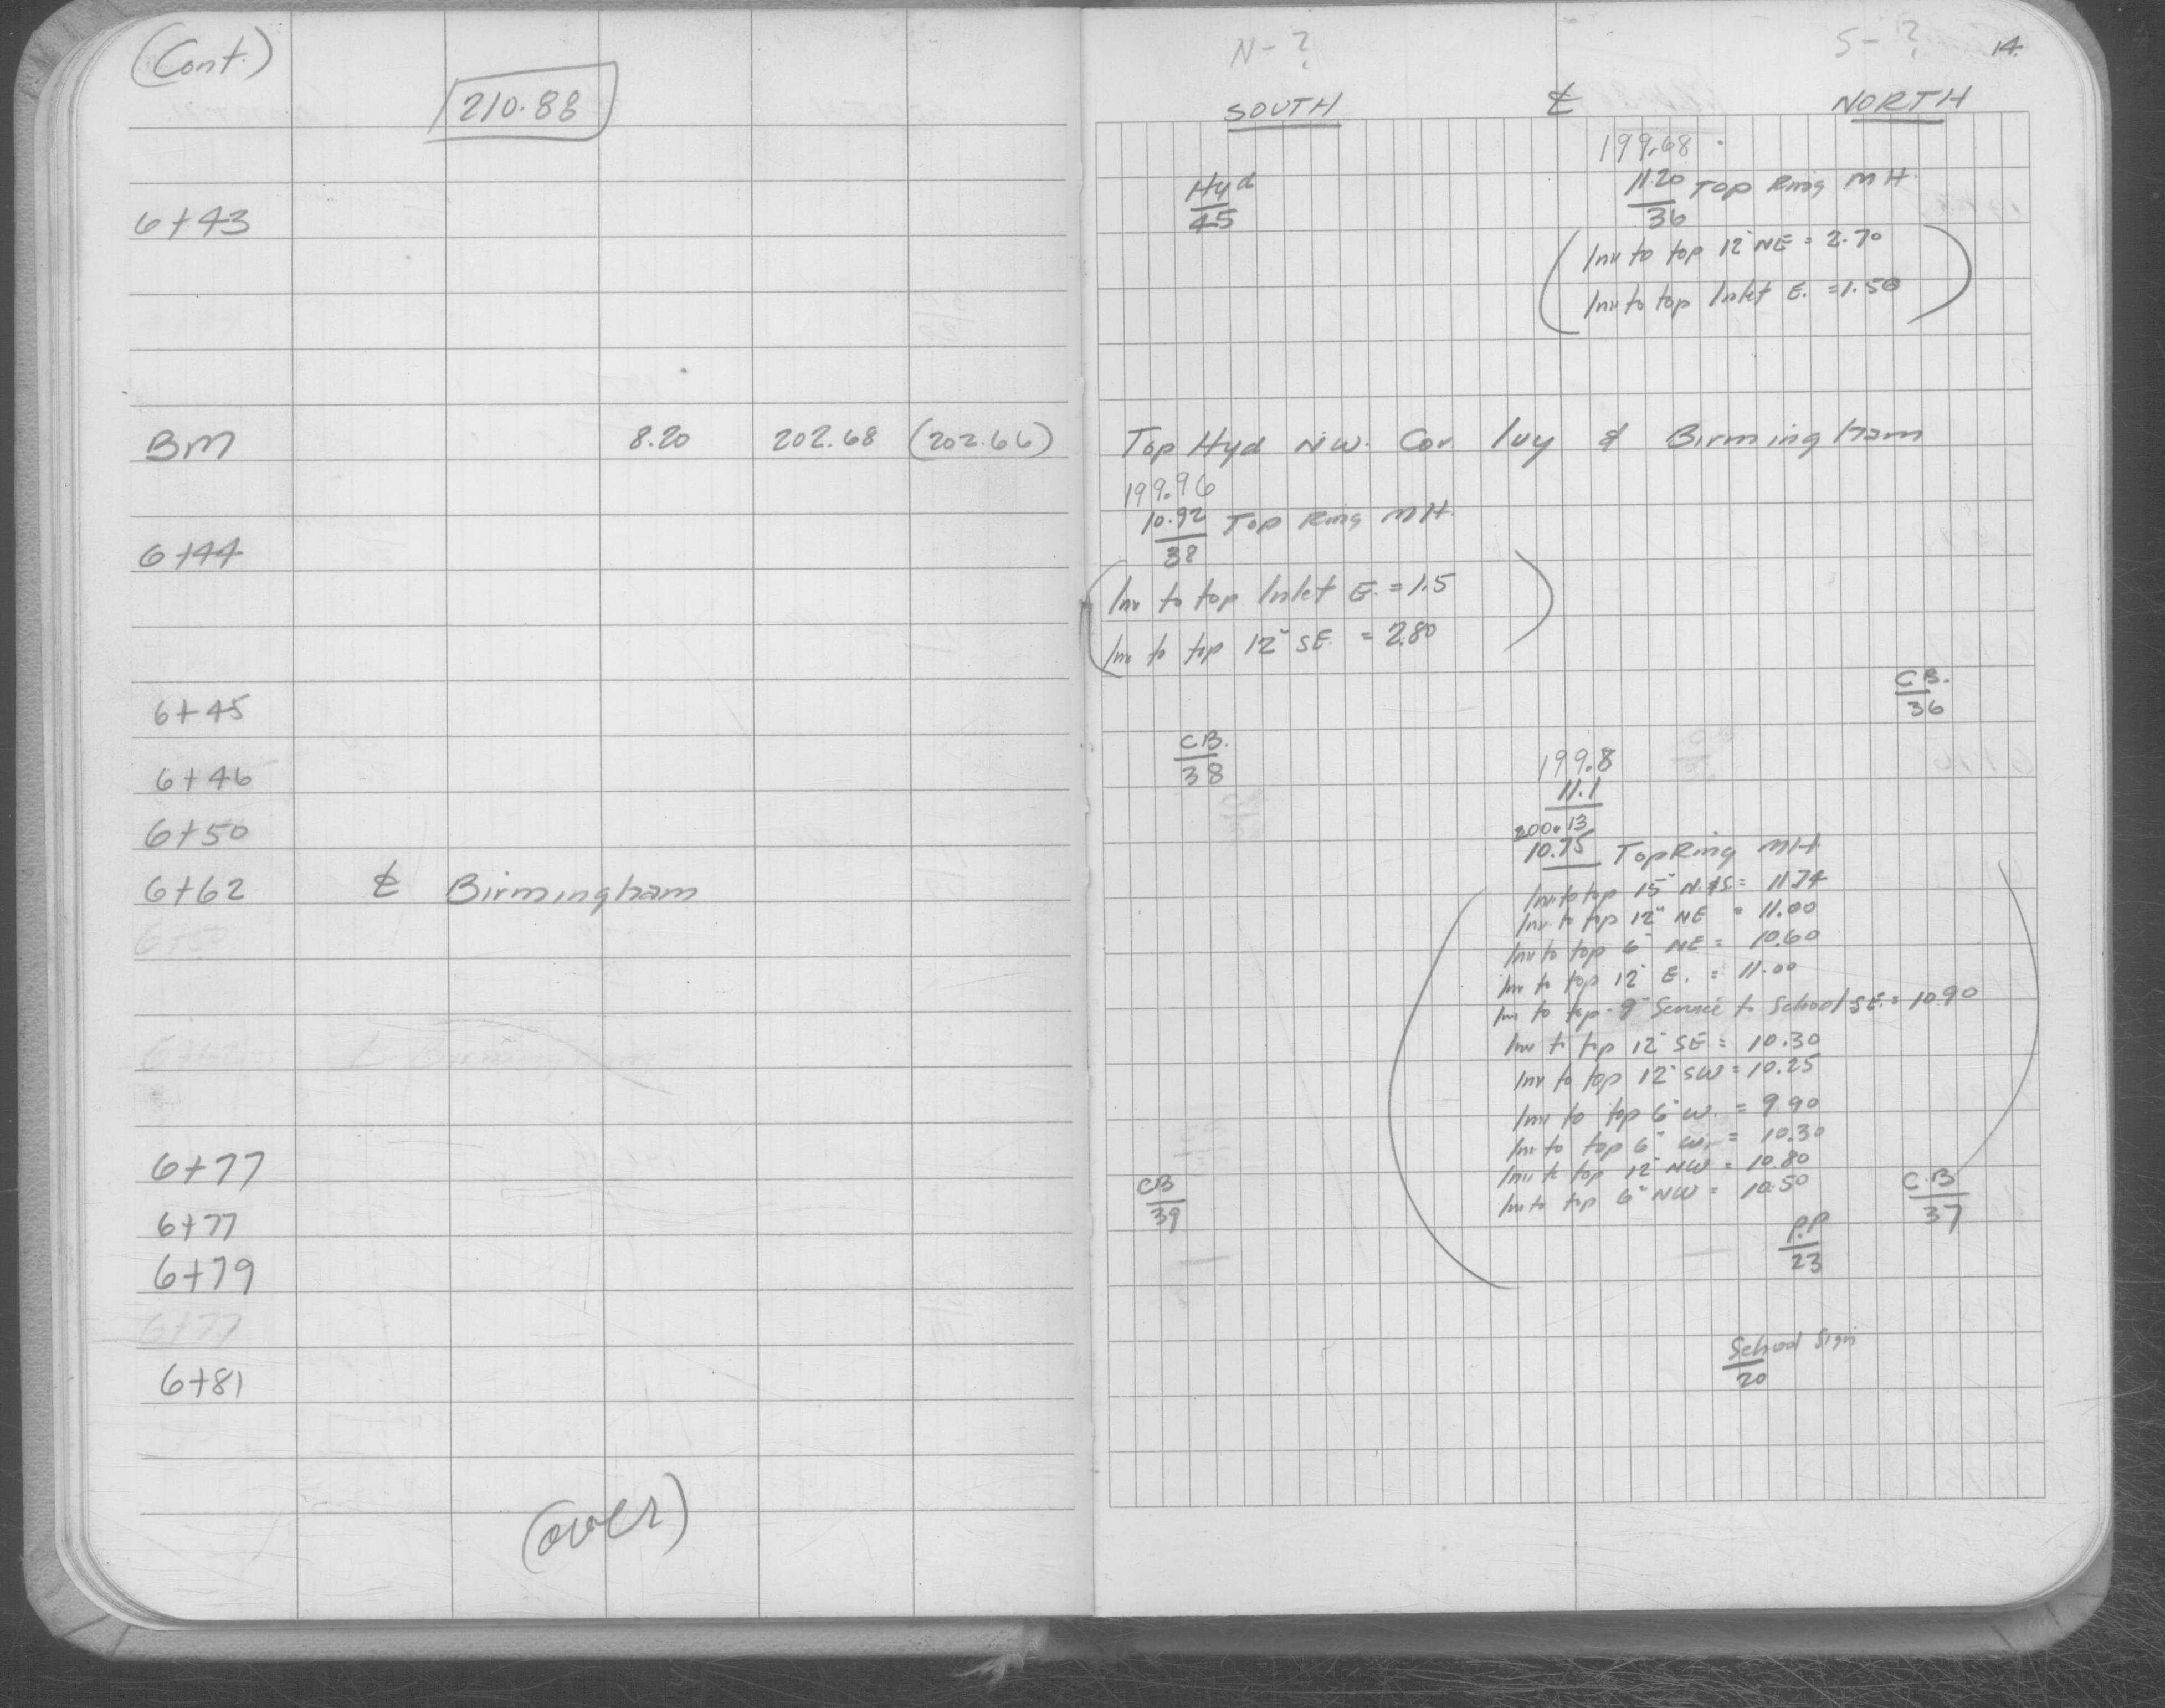 (Cont.)
210.88
6+43
BM 8.20 202.68 (202.66)
6+44
6+45
6+46
6+50
6+62 ℄ Birmingham
6+77
6+77
6+79
6+77
6+81
(over)
N-? S-? 14.
SOUTH ℄ NORTH
199.68
Hyd
45
11.20 Top Ring MH.
36
Inv to top 12" NE = 2.70
Inv to top Inlet E. = 1.50
Top Hyd N.W. Cor Ivy & Birmingham
199.96
10.92 Top Ring MH.
38
Inv to top Inlet E. = 1.5
Inv to top 12" SE. = 2.80
C.B.
36
C.B.
38
199.8
11.1
200.13
10.75 Top Ring MH.
Inv to top 15" N.&S. = 11.74
Inv to top 12" NE = 11.00
Inv to top 6" NE = 10.60
Inv to top 12" E. = 11.00
Inv to top 9" Service to School SE. = 10.90
Inv to top 12" SE = 10.30
Inv to top 12" SW = 10.25
Inv to top 6" W. = 9.90
Inv to top 6" W. = 10.30
Inv to top 12" NW = 10.80
Inv to top 6" NW = 10.50
CB
39
C.B
37
P.P
23
School Sign
20